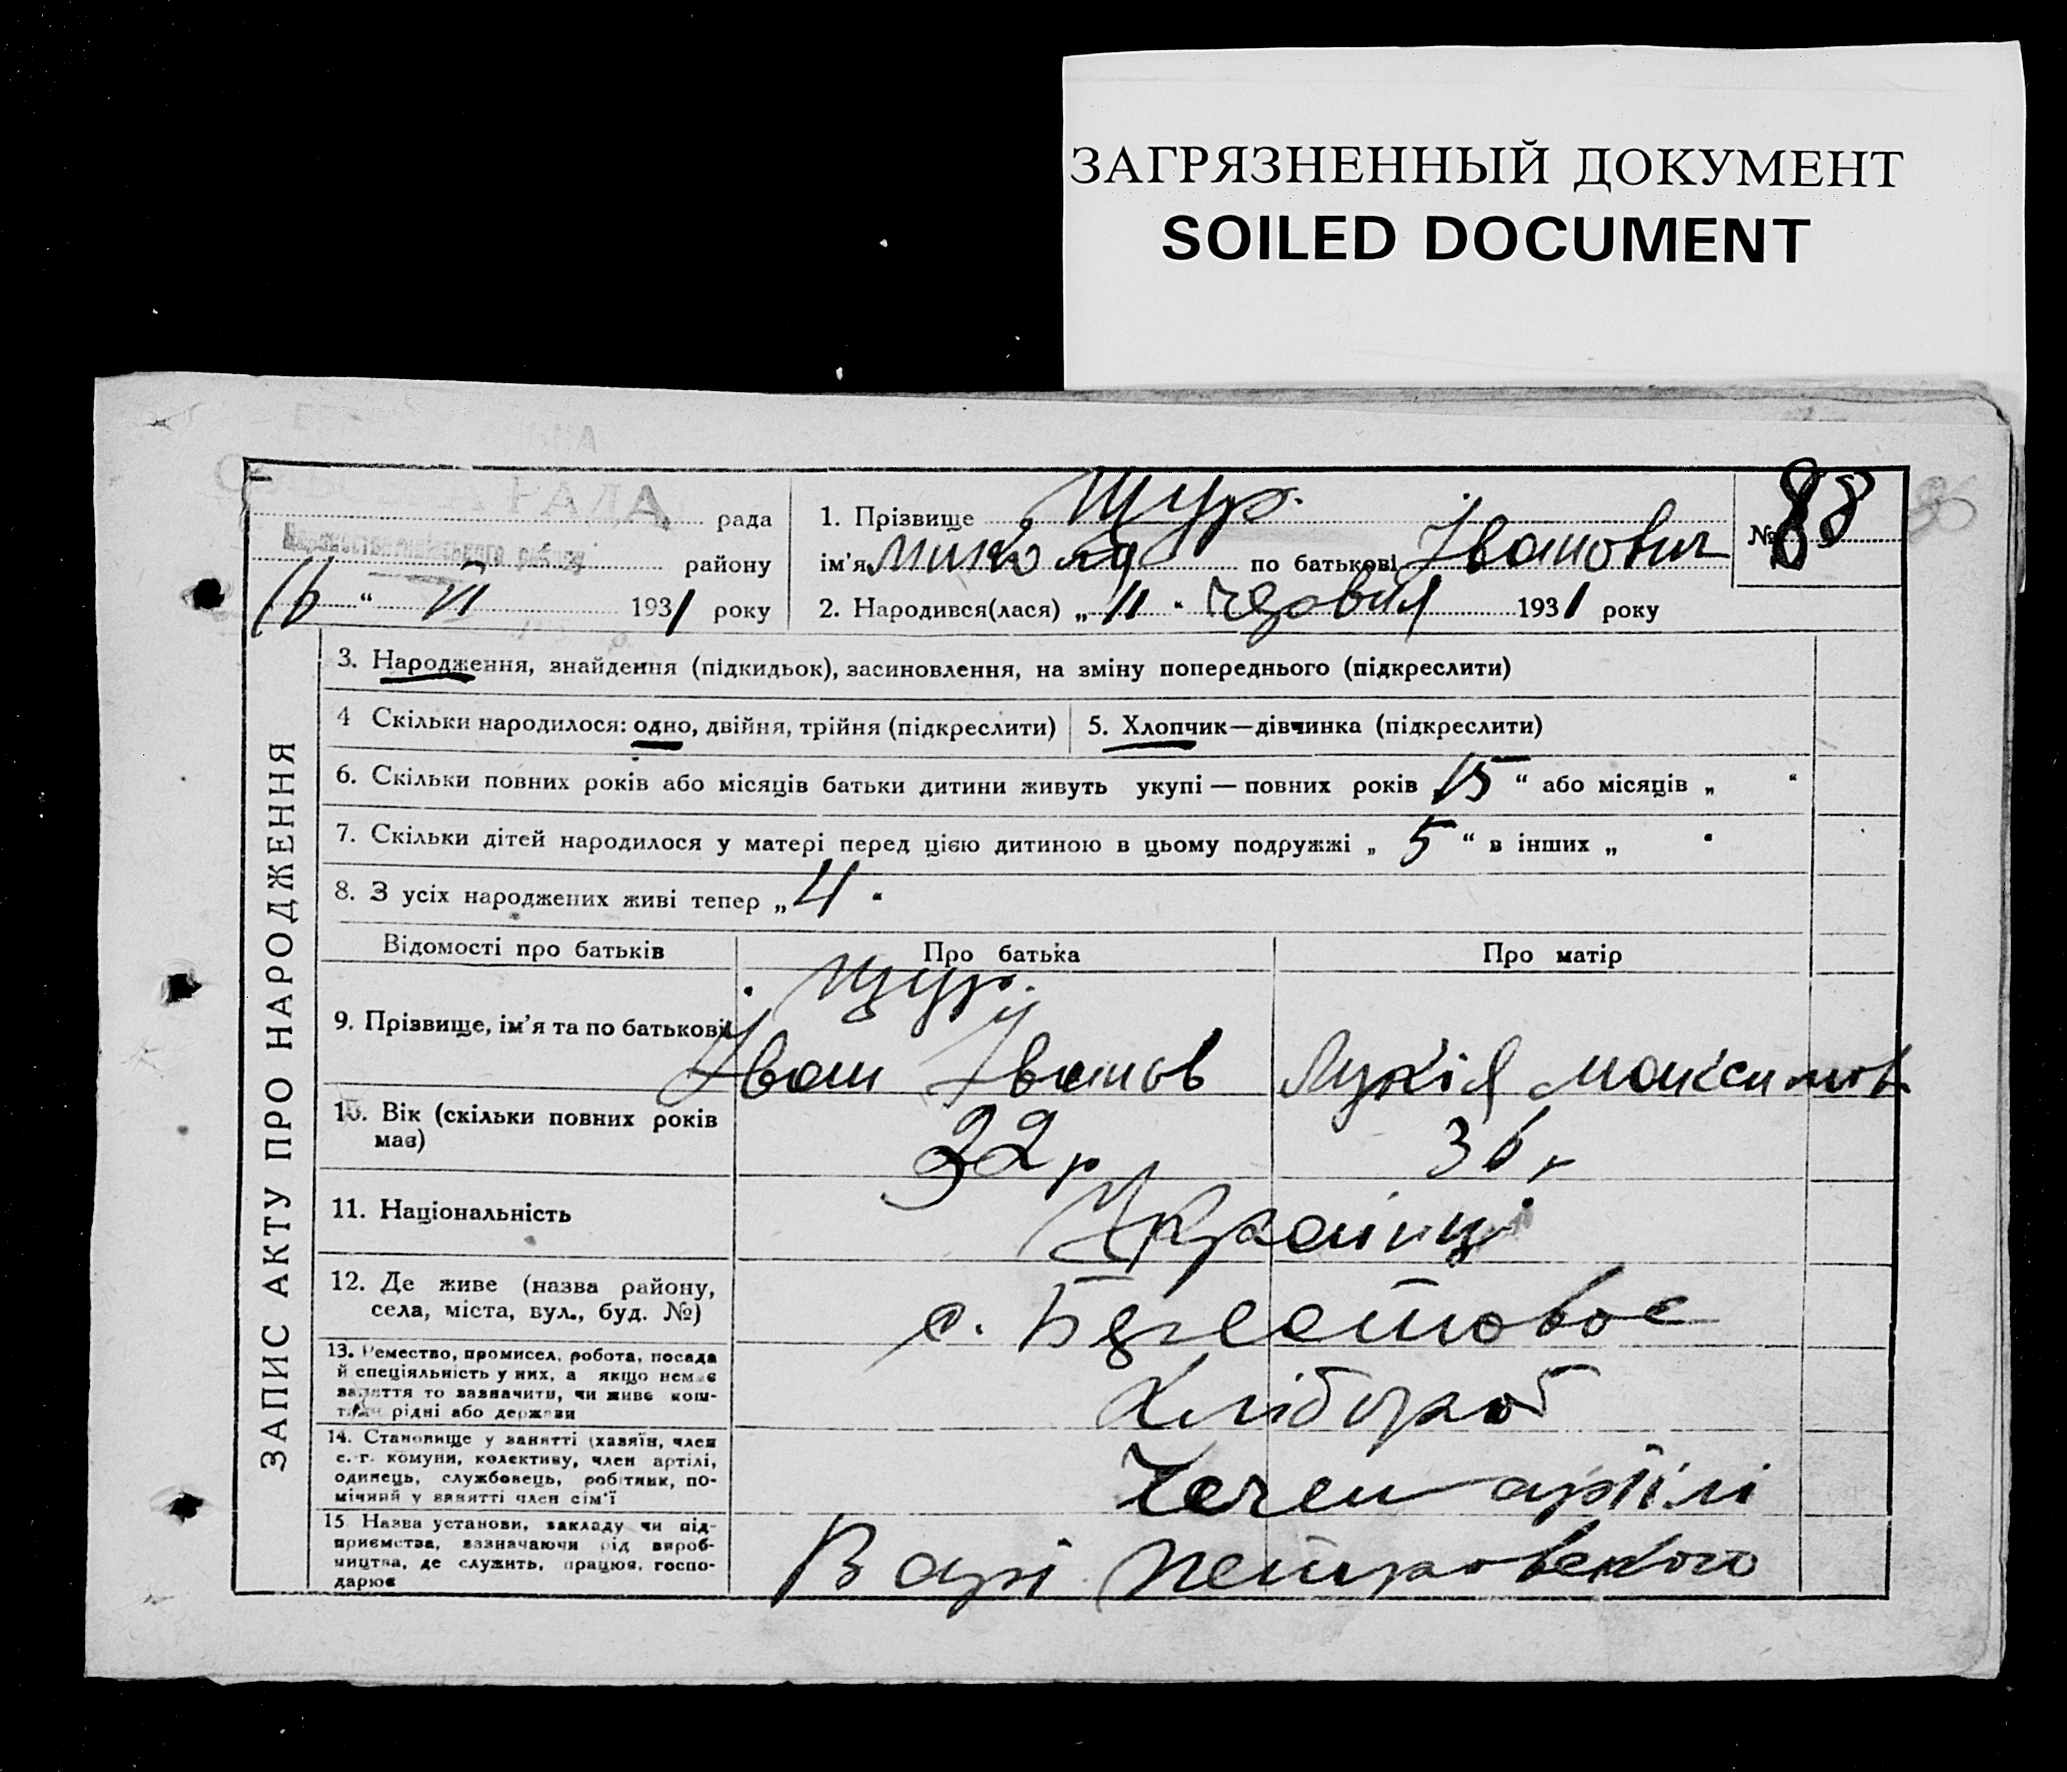 ЗАГРЯЗНЕННЫЙ ДОКУМЕНТ
SOILED DOCUMENT
РАДА рада
району
16 “ VI 1931 року
1. Прізвище Щур.
ім'я Микола по батькові Іванович
2. Народився(лася) „ 11 “ червня 1931 року
№ 88
ЗАПИС АКТУ ПРО НАРОДЖЕННЯ
3. Народження, знайдення (підкидьок), засиновлення, на зміну попереднього (підкреслити)
4 Скільки народилося: одно, двійня, трійня (підкреслити)
5. Хлопчик—дівчинка (підкреслити)
6. Скільки повних років або місяців батьки дитини живуть укупі — повних років 15 “ або місяців „ “
7. Скільки дітей народилося у матері перед цією дитиною в цьому подружжі „ 5 “ в інших „
8. З усіх народжених живі тепер „ 4 “
Відомості про батьків Про батька Про матір
9. Прізвище, ім'я та по батькові
Щур.
Іван Іванов Лукія Максимов
10. Вік (скільки повних років має)
32 р 36 р
11. Національність
Українці
12. Де живе (назва району,
села, міста, вул., буд. №)
с. Берестовое
13. Ремество, промисел, робота, посада
й спеціяльність у них, а якщо немає
заняття то зазначити, чи живе кош-
тами рідні або держави
Хлібороб
14. Становище у занятті (хазяїн, член
с.-г. комуни, колективу, член артілі,
одинець, службовець, робітник, по-
мічний у занятті член сім'ї
Член артілі
15 Назва установи, закладу чи під-
приємства, зазначаючи рід вироб-
ництва, де служить, працює, госпо-
дарює
В арт Петровского